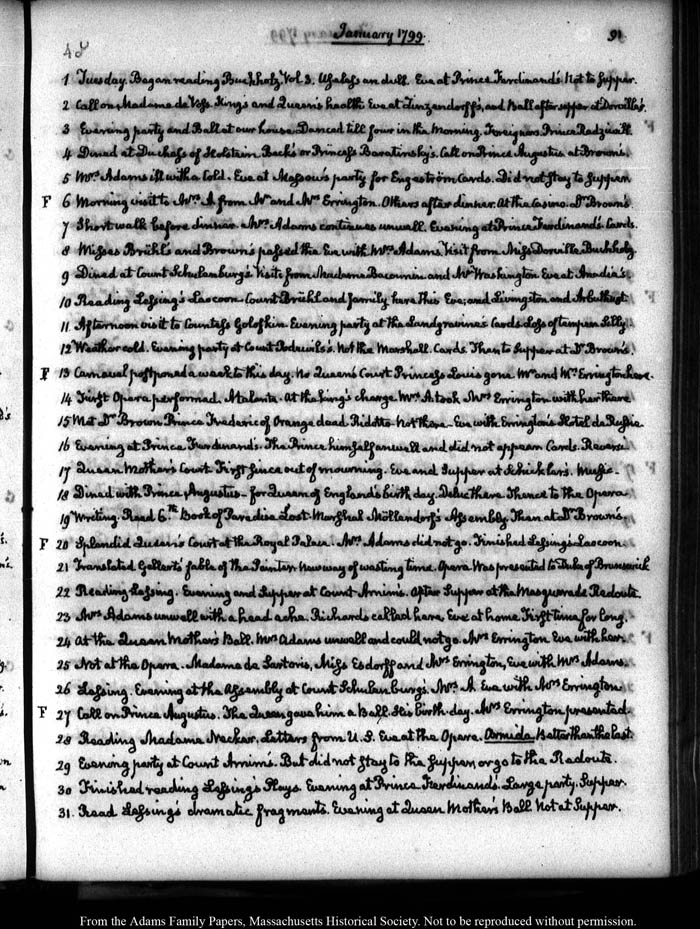 January 1799.
91
48
1 Tuesday. Began reading Buchholz Vol 3. Useless and dull. Eve at Prince Ferdinand's. Not to supper.
2 Call on Madame de Voss King's and Queen's health Eve at Zinzendorff's, and Ball after supper at Dorville's.
3 Evening party and Ball at our house. Danced till four in the Morning. Foreigners. Prince Radziwill.
4 Dined at Duchess of Holstein Beck's or Princess Baratinsky's. Call on Prince Augustus at Brown's.
5 Mrs. Adams ill with a Cold. Eve at Massow's party for Engeström Cards. Did not stay to supper
F 6 Morning visit to Mrs. A from Mr and Mrs Errington. Others after dinner. At the Casino. Dr Brown's.
7 Short walk before dinner. Mrs. Adams continues unwell. Evening at Prince Ferdinand's. Cards.
8 Misses Brühl's and Brown's passed the Eve with Mrs Adams. Visit from Miss Dorville Buchholz
9 Dined at Count Schulenburg's. Visits from Madame Bacounin and Mr Washington Eve at Anadia's
10 Reading Lessing's Laocoon. Count Brühl and family here this Eve; and Livingston and Arbuthnot.
11 Afternoon visit to Countess Golofkin. Evening party at the Landgravine's Cards. Loss of temper. Silly.
12 Weather cold. Evening party at Count Podewils's. Not the Marshall. Cards. Then to supper at Dr Brown's.
F 13 Carnaval postponed a week to this day. No Queen's Court Princess Louis gone. Mr and Mrs Errington here.
14 First Opera performed. Atalanta. At the king's charge Mrs A. took Mrs Errington with her there
15 Met Dr Brown. Prince Frederic of Orange dead. Ridotto. Not there. Eve with Errington's Hotel de Russie.
16 Evening at Prince Ferdinand's. The Prince himself unwell and did not appear. Cards. Reversi
17 Queen Mother's Court First since out of mourning. Eve and supper at Schickler's. Music.
18 Dined with Prince Augustus- for Queen of England's birth day. Duke there. Thence to the Opera
19 Writing. Read 6th. Book of Paradise Lost- Marshal Möllendorf's Assembly. Then at Dr Brown's.
F 20 Splendid Queen's Court at the Royal Palace. Mrs. Adams did not go. Finished Lessing's Laocoon.
21 Translated Gellert's fable of the Painter. New way of wasting time. Opera Was presented to Duke of Brunswick
22 Reading Lessing. Evening and supper at Count Arnim's. After supper at the Masquerade Redoute.
23 Mrs Adams unwell with a head ache. Richards called here. Eve at home. First time for long.
24 At the Queen Mother's Ball. Mrs Adams unwell and could not go. Mrs Errington Eve with her.
25 Not at the Opera. Madame de Sartoris, Miss Esdorff and Mrs Errington, Eve with Mrs Adams.
26 Lessing. Evening at the Assembly at Count Schulenburg's. Mrs. A Eve with Mrs Errington
F 27 Call on Prince Augustus. The Queen gave him a Ball. His birth day. Mrs Errington presented.
28 Reading Madame Necker. Letters from U.S. Eve at the Opera. Armida. Better than the last.
29 Evening party at Count Arnim's. But did not stay to the supper or go to the Redoute.
30 Finished reading Lessing's Plays. Evening at Prince Ferdinand's. Large party. Supper.
31. Read Lessing's dramatic fragments. Evening at Queen Mother's Ball. Not at supper.
From the Adams Family Papers, Massachusetts Historical Society. Not to be reproduced without permission.